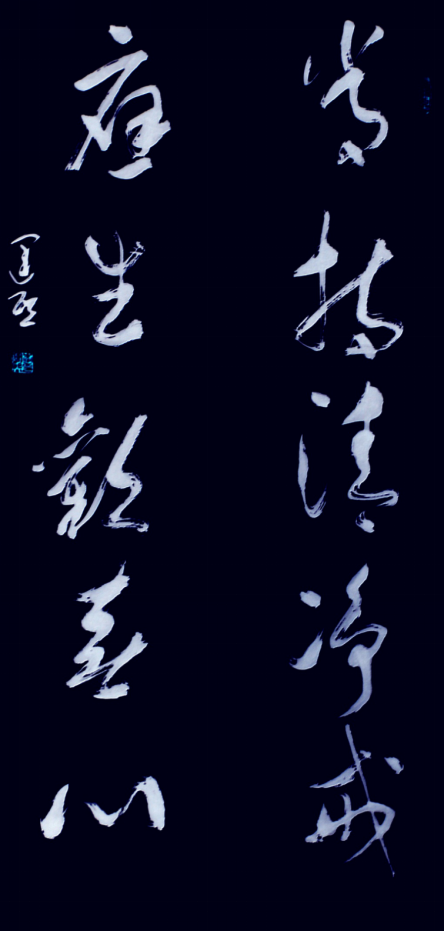 常持清淨戒
應生歡喜心